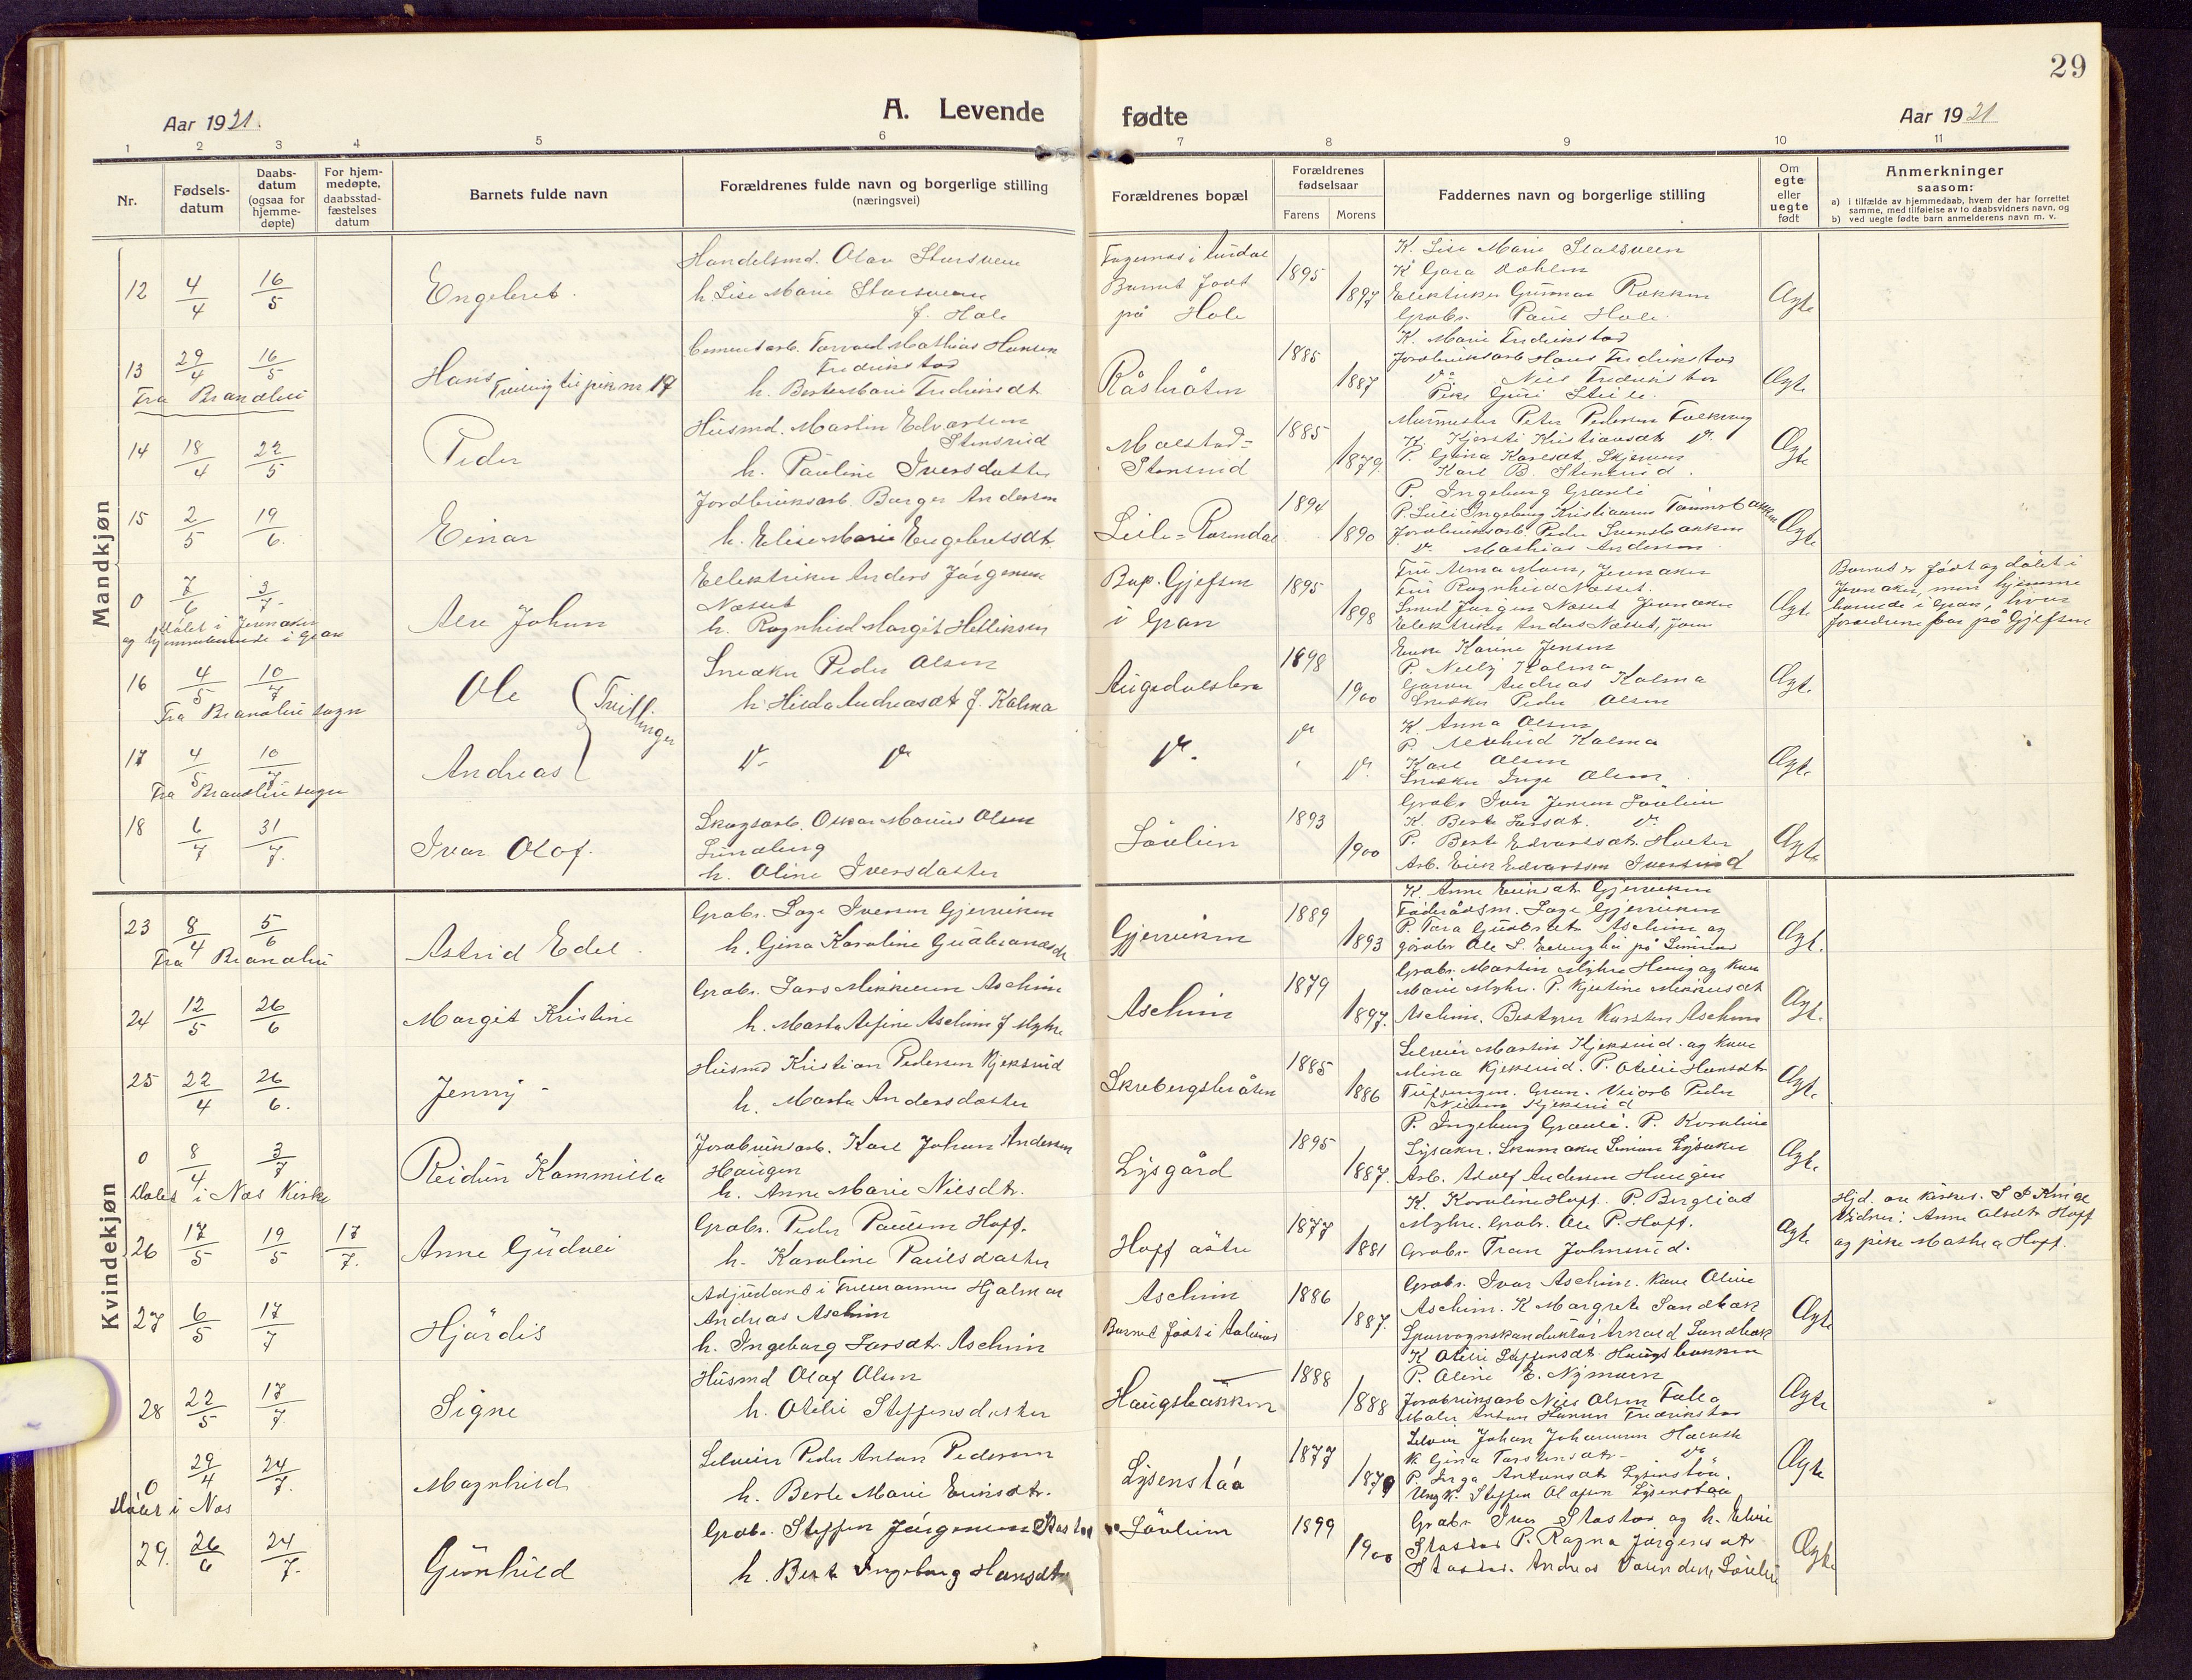 29
Aar 1921.
A. Levende fødte
Aar 1921
1 2 3 4 5 6 7 8 9 10 11
Nr.
Fødsels-
datum
Daabs-
datum
(ogsaa for
hjemme-
døpte)
For hjem-
medøpte,
daabsstad-
fæstelses
datum
Barnets fulde navn
Forældrenes fulde navn og borgerlige stilling
(næringsvei)
Forældrenes bopæl
Forældrenes
fødselsaar
Farens Morens
Faddernes navn og borgerlige stilling
Om
egte
eller
uegte
født
Anmerkninger
saasom:
a) i tilfælde av hjemmedaab, hvem der har forrettet
samme, med tilføielse av to daabsvidners navn, og
b) ved uegte fødte barn anmelderens navn m. v.
Mandkjøn
12 4/4 16/5 Engebret.
Handelsmd. Olav
h. Lise Marie
f. Hole
Fagernes i
Barnet født
på Hole
1895 1897
K. Lise Marie
K
Elektriker Gunnar
Grobr. Paul Hole
Ægte
13 29/4 16/5
Fra Brandbu
Hans Tvilling til pike nr 17
Cementarb. Torvald Mathias Hansen
Fredrikstad
h. Berte Marie Fredriksdt.
Råsbråten
1885 1887
K. Marie Fredrikstad
Jordbruksarb Hans Fredrikstad
do Niels Fredrikstad
Pike Guri
Ægte
14 18/4 22/5 Peder
Husmd. Martin Edvartsen
Stensrud
h. Pauline Iversdatter
Molstad-
Stensrud
1885 1879
Murmester Peter Pedersen
K. Kjersti Kristiansdt. do.
P. Gina Karlsdt. Skjerven
Karl B. Stensrud.
Ægte
15 2/5 19/6. Einar
Jordbruksarb. Borger Andersen
h. Elise Marie Engebretsdt.
Lille-Rosendal
1894 1890
P. Ingeborg Granli
P. Lilli Ingeborg Kristiansen
Jordbruksarb. Peder
do. Mathias Andersen
Ægte
0 7/6 3/7
Døbt i Jevnaker
og hjemmehørende i Gran
Alf Johan
Elektriker Anders Jørgensen
Næsset
h. Ragnhild Margit Helliksen
Bop. Gjefsen
i Gran
1895 1898
Fru Alma Moen, Jevnaker
Fru Ragnhild Næsset.
Smed Jørgen Næsset Jevnaker
Elektriker Anders Næsset, Jevn
Ægte.
Barnet er født og døbt i
Jevnaker, men hjemme
hørende i Gran, hvor
forældrene bor på Gjefsen
16 4/5 10/7
Fra Brandbu sogn
Ole
Tvillinger
Snekker Peder Olsen
h. Hilda Andreasdt. f. Kalma
Augedalsbro
1898 1900
Enke Karine Jensen
P. Nelly Kalma
Garver Andreas Kalma
Snekker Peder Olsen
Ægte.
17 4/5 10/7
Fra Brandbu sogn
Andreas
do do
do.
do do
K. Anna Olsen
P. Kalma
Karl Olsen
Snekker Inge Olsen
Ægte.
18 6/7 31/7. Ivar Olaf.
Skogsarb. Oskar Marius Olsen
Lundberg
h. Oline Iversdatter
Løvlien
1893 1900
Grobr Iver Jensen Løvlien
K. Berte Larsdt. do.
P. Berte Edvartsdt.
Arb. Erik Edvartsen Iversrud
Ægte
Kvindekjøn
23 8/4 5/6
Fra Brandbu
Astrid Edel.
Grobr. Lage Iversen Gjervikn
h. Gina Karoline Gulbrandsdt
Gjerviken
1889 1893
K. Anne Eriksdt Gjerviken
Føderådsm. Lage Gjerviken
P. Tora Gulbrdt. Aschim og
på
Ægt.
24 12/5 26/6 Margit Kristine
Grobr. Lars Mikkelsen Aschim
h. Marta Aschim f Myhre
Aschim
1879 1897.
Grobr. Martin Myhre og kone
Marie Myhre. P. Kjestine Mikkelsdt
Aschim. Bestyrer Karsten Aschim
Ægt.
25 22/4 26/6. Jenny -
Husmd Kristian Pedersen Kjeksrud
h. Marta Andersdatter
Skrebergsbråten
1885 1886
Selveier Martin Kjeksrud. og kone
Mina Kjeksrud. P. Otilie Hansdtr
Gran. Veiarb Peder
Nielsen Kjeksrud
Ægte
0 8/4 3/7
Døbt i Nes Kirke
Reidun Kammilla
Jordbruksarb. Karl Johan Andersen
Haugen
h. Anne Marie Nilsdtr.
Lysgård
1895 1887.
P. Ingeborg Granli. P. Karoline
Lysaker. Skomaker Simen Lysaker
Arb. Adolf Andersen Haugen
Ægte
26 17/5 19/5 17/7. Anne Gudvei
Grobr. Peder Paulsen Hoff.
h. Karoline Paulsdatter
Hoff østre
1877 1881
K. Karoline Hoff. P. Bergliot
Myhre. Grobr. Ole P. Hoff.
Grobr. Johnsrud.
Ægte
Hjd. av kirkes. S P Kinge
Vidner: Anne Olsdt Hoff
og pike Mathea Hoff.
27 6/5 17/7 Hjørdis
Adjudant i Frelsesarmeen Hjalmar
Andreas Aschim
h. Ingeborg Larsdt. Aschim
Aschim
Barnet født i
1886 1887.
Grobr. Ivar Aschim. Kone Oline
Aschim. K Margrete Sandbæk
Sporvognskonduktør Arnold Sandbæk
Ægte
28 22/5 17/7. Signe
Husmd Olaf Olsen
h. Otilie Steffensdatter
Haugsbakken
1888 1888
K Otilie Steffensdt. Haugsbakken
P. Oline E. Nymoen
Jordbruksarb Nils Olsen Falla
Maler Anton Hansen Fredrikstad
Ægte
0 29/4 24/7.
Døbt i Nes
Magnhild
Selveier Peder Anton Pedersen
h. Berte Marie Eriksdtr.
Lysenstøa
1877 1879
Selveier Johan Johannesen
K Gina Torstensdtr. do
P. Inga Antonsdt Lysenstøa.
Ungk. Steffen Olafsen Lysenstøa
Ægte
29. 26/6 24/7. Gunhild
Grobr. Steffen Jørgensen Stastad
h. Berte Ingeborg Hansdtr
Løvlien
1899 1900
Grobr Iver Stastad og h. Elvie
Stastad P. Ragna Jørgensdtr
Stastad. Andreas Løvlien
Ægte